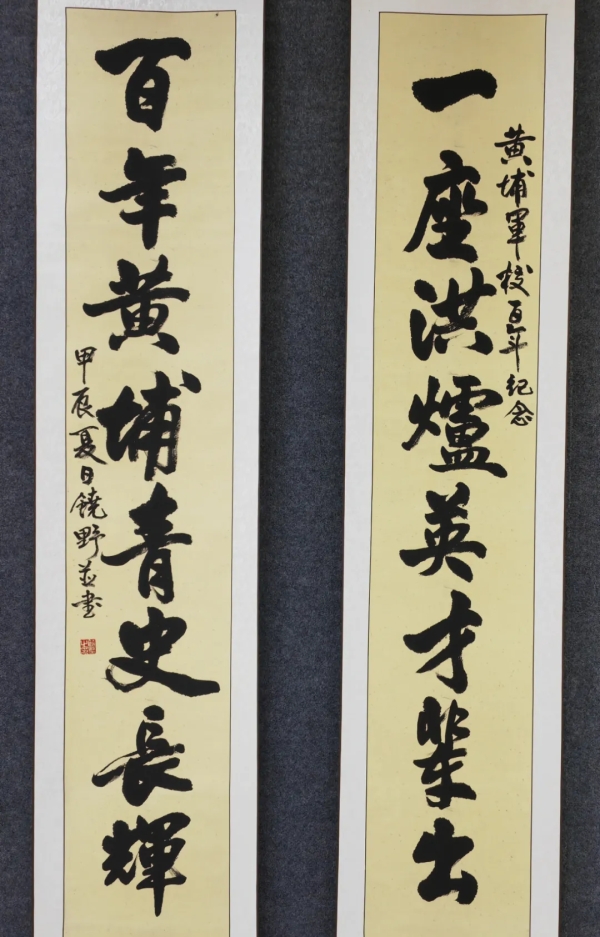 黄埔軍校百年纪念
一座洪爐英才輩出
百年黄埔青史長輝
甲辰夏日饒野並书